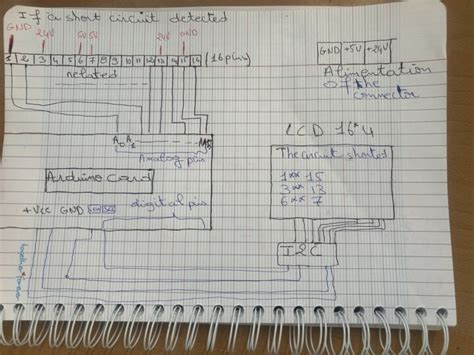 If a short circuit detected
GND 24V 5V 5V 24V GND
1 2 3 4 5 6 7 8 9 10 11 12 13 14 15 14 (16 pins)
related
GND +5V +24V
Alimentation
Of the
connector
A0 A1 A15
Analog pins
Arduino Card
+Vcc GND digital pin
LCD 16*4
The circuit shorted
1 ** 15
3 ** 13
6 ** 7
I2C